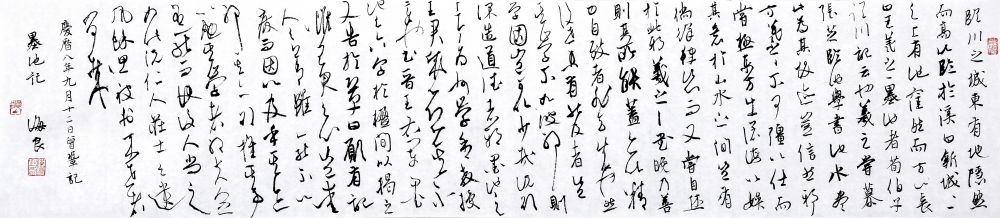 临川之城東有地隱然
而高以临於溪曰新城二
之上有池窪然而方以長
曰王羲之之墨池者荀伯子
临川記云也羲之嘗慕
張芝临池學書池水尽
黑此為其故迹豈信然邪
方羲之之不可彊以仕而
嘗極東方出滄海以娱
其意於山水之間豈有
徜徉肆恣而又嘗自休
於此邪羲之之書晚乃善
則其所能蓋亦以精
力自致者非天成也然
後世未有能及者豈
其學不如彼邪則
學固豈可以少哉况欲
深造道德者邪墨池之
上今為州學舍教授
王君盛恐其不
章也書晋王右軍墨
池之六字於楹間以揭之
又告於鞏曰願有記
推王君之心豈愛
人之善雖一能不以
廢而因以及乎其迹
邪其亦欲推其事
以勉其學者邪夫人之
有一能而使後人尚之
如此况仁人莊士之遺
風餘思被於来世者
何如哉
慶曆八年九月十二日曾鞏記
墨池記 海良